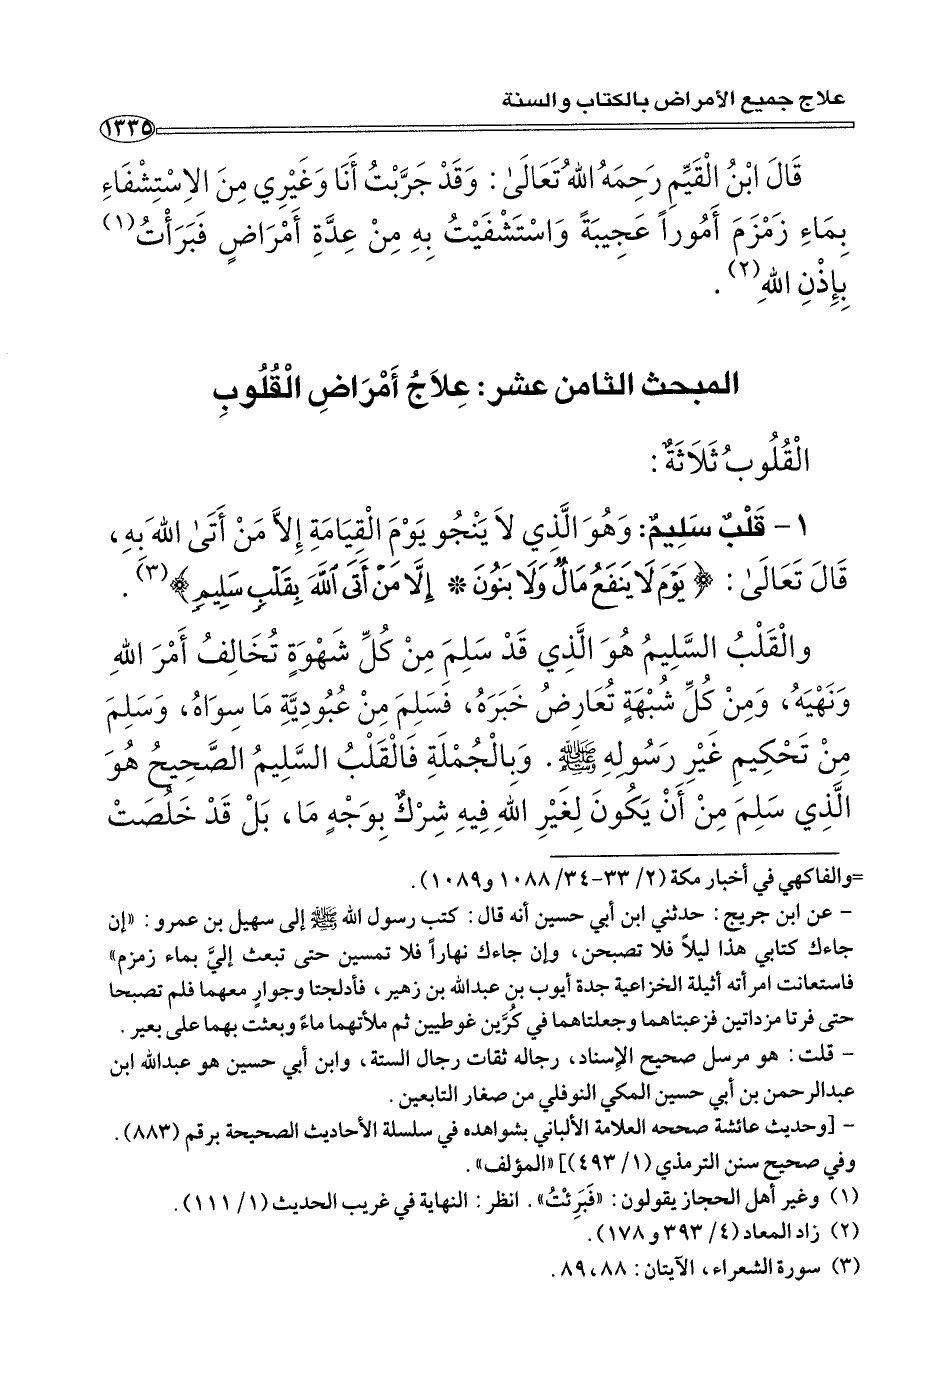 علاج جميع الأمراض بالكتاب والسنة
١٣٣٥
قَالَ ابْنُ الْقَيِّمِ رَحِمَهُ اللهُ تَعَالَىٰ: وَقَدْ جَرَّبْتُ أَنَا وَغَيْرِي مِنَ الاِسْتِشْفَاءِ
بِمَاءِ زَمْزَمَ أُمُوراً عَجِيبَةً وَاسْتَشْفَيْتُ بِهِ مِنْ عِدَّةِ أَمْرَاضٍ فَبَرَأْتُ(١)
بِإِذْنِ اللهِ(٢).
المبحث الثامن عشر: عِلاَجُ أَمْرَاضِ الْقُلُوبِ
الْقُلُوبُ ثَلاَثَةٌ:
١- قَلْبٌ سَلِيمٌ: وَهُوَ الَّذِي لاَ يَنْجُو يَوْمَ الْقِيَامَةِ إِلاَّ مَنْ أَتَىٰ اللهَ بِهِ،
قَالَ تَعَالَىٰ: ﴿يَوْمَ لَا يَنفَعُ مَالٌ وَلَا بَنُونَ * إِلَّا مَنْ أَتَى ٱللَّهَ بِقَلْبٍ سَلِيمٍ﴾(٣).
والْقَلْبُ السَّلِيمُ هُوَ الَّذِي قَدْ سَلِمَ مِنْ كُلِّ شَهْوَةٍ تُخَالِفُ أَمْرَ اللهِ
وَنَهْيَهُ، وَمِنْ كُلِّ شُبْهَةٍ تُعَارِضُ خَبَرَهُ، فَسَلِمَ مِنْ عُبُودِيَّةِ مَا سِوَاهُ، وَسَلِمَ
مِنْ تَحْكِيمِ غَيْرِ رَسُولِهِ ﷺ. وَبِالْجُمْلَةِ فَالْقَلْبُ السَّلِيمُ الصَّحِيحُ هُوَ
الَّذِي سَلِمَ مِنْ أَنْ يَكُونَ لِغَيْرِ اللهِ فِيهِ شِرْكٌ بِوَجْهٍ مَا، بَلْ قَدْ خَلُصَتْ
=والفاكهي في أخبار مكة (٢/ ٣٣-٣٤/ ١٠٨٨ و١٠٨٩).
- عن ابن جريج: حدثني ابن أبي حسين أنه قال: كتب رسول الله ﷺ إلى سهيل بن عمرو: «إن
جاءك كتابي هذا ليلاً فلا تصبحن، وإن جاءك نهاراً فلا تمسين حتى تبعث إليَّ بماء زمزم»
فاستعانت امرأته أثيلة الخزاعية جدة أيوب بن عبدالله بن زهير، فأدلجتا وجوارٍ معهما فلم تصبحا
حتى فرتا مزداتين فزعبتاهما وجعلتاهما في كُرَّين غوطيين ثم ملأتهما ماءً وبعثت بهما على بعير.
- قلت: هو مرسل صحيح الإسناد، رجاله ثقات رجال الستة، وابن أبي حسين هو عبدالله ابن
عبدالرحمن بن أبي حسين المكي النوفلي من صغار التابعين.
- [وحديث عائشة صححه العلامة الألباني بشواهده في سلسلة الأحاديث الصحيحة برقم (٨٨٣).
وفي صحيح سنن الترمذي (١/ ٤٩٣)] «المؤلف».
(١) وغير أهل الحجاز يقولون: «فَبَرِئْتُ». انظر: النهاية في غريب الحديث (١/ ١١١).
(٢) زاد المعاد (٤/ ٣٩٣ و١٧٨).
(٣) سورة الشعراء، الآيتان: ٨٨، ٨٩.